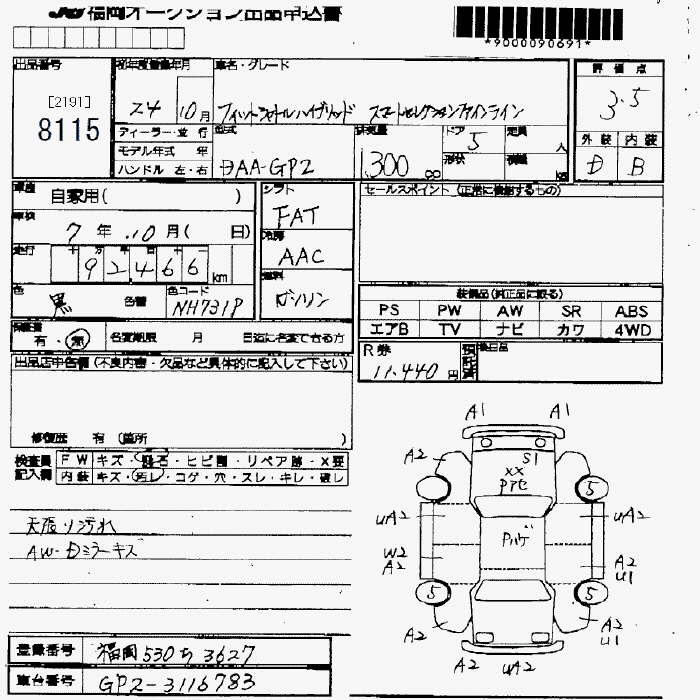 JAG福岡オークション出品申込書
*9000090691*
出品番号
[2191]
8115
初年度登録年月
24 10月
ディーラー・並 行
モデル年式 年
ハンドル 左・右
車名・グレード
フィットシャトルハイブリッド スマートセレクションファインライン
型式
DAA-GP2
排気量
1300 cc
ドア
5
形状
定員
人
積載
kg
評 価 点
3.5
外 装 内 装
D B
車歴
自家用( )
車検
7 年 10 月( 日)
走行
十 万 千 百 十
92466 km
色
黒 色替
色コード
NH731P
シフト
FAT
冷房
AAC
燃料
ガソリン
セールスポイント(正常に機能するもの)
装備品(純正品に限る)
PS PW AW SR ABS
エアB TV ナビ カワ 4WD
保証書
有・無
名変期限 月 日迄に名変できる方
R券
11,440 円
預託済
後日品
出品店申告欄(不良内容・欠品など具体的に記入して下さい)
修復歴 有 (箇所 )
検査員
記入欄
FW キズ・飛石・ヒビ割・リペア跡・X要
内装 キズ・汚レ・コゲ・穴・スレ・キレ・破レ
天張り汚れ
AW・Dミラーキズ
A1 A1
A2 S1 A2
XX
Pアセ
5
uA2 Pルーブ uA2
W2
A2
A2
U1
5 5
A2 A2
U1
A2 uA2 A2
登録番号 福岡 530 ち 3627
車台番号 GP2-3116783